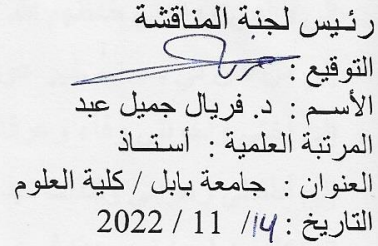 رئيس لجنة المناقشة
التوقيع :
الأسم : د. فريال جميل عبد
المرتبة العلمية : أستاذ
العنوان : جامعة بابل / كلية العلوم
التاريخ : 14/ 11 / 2022